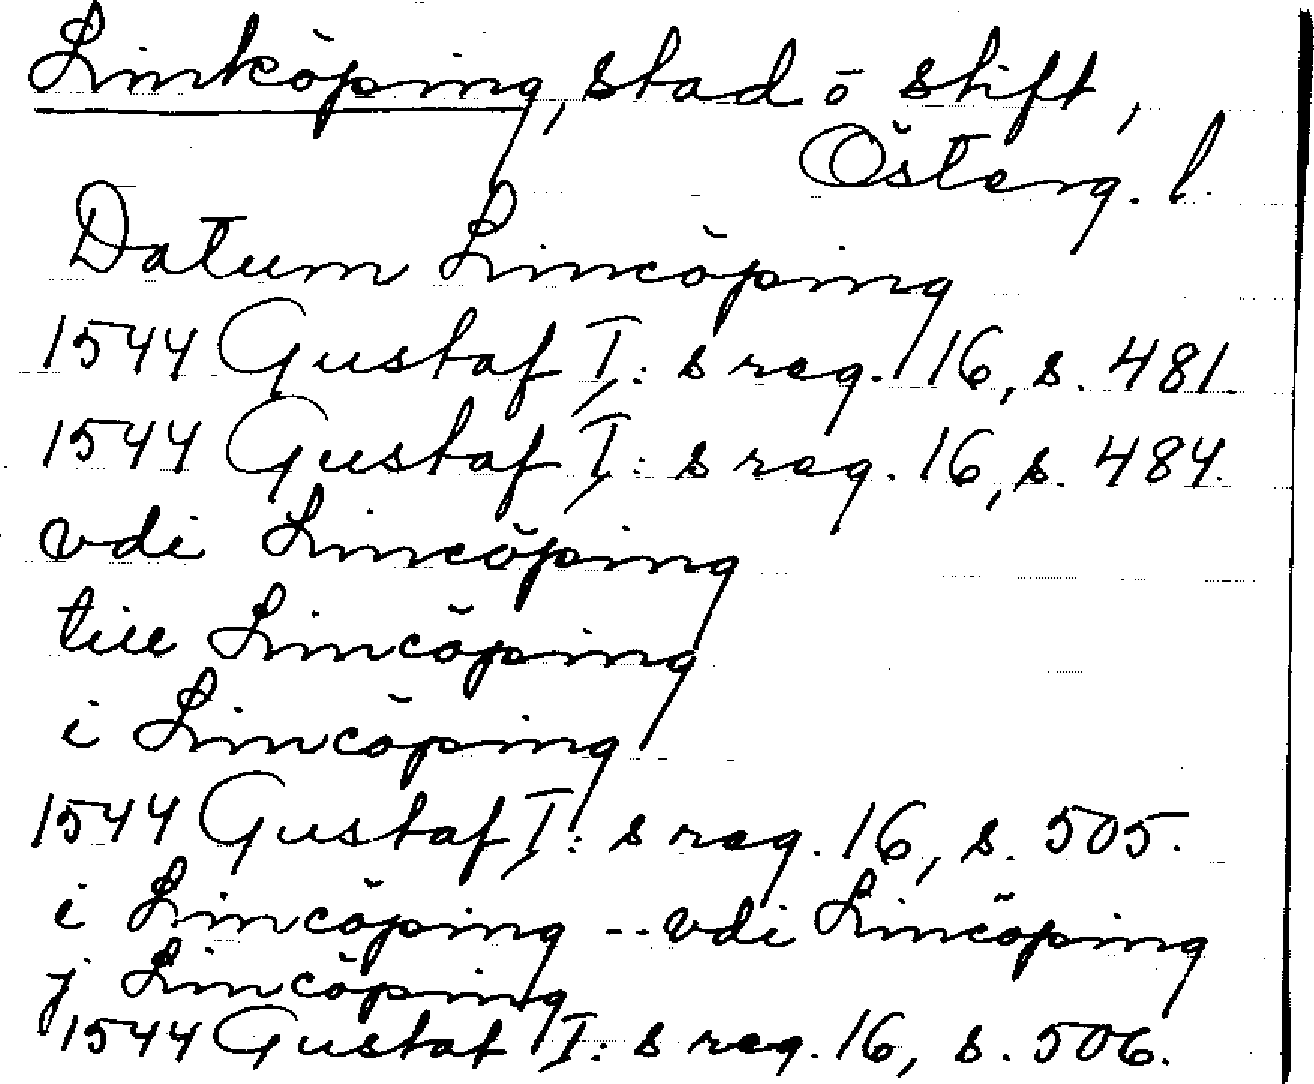 Linköping, stad o stift,
Österg. l.
Datum Linköping
1544 Gustaf I: s reg. 16, s. 481
1544 Gustaf I: s reg. 16, s. 484.
vdi Lincöping
till Lincöping
i Lincöping
1544 Gustaf I: s reg. 16, s. 505.
i Lincöping -- vdi Lincöping
j Lincöping
1544 Gustaf I: s reg. 16, s. 506.